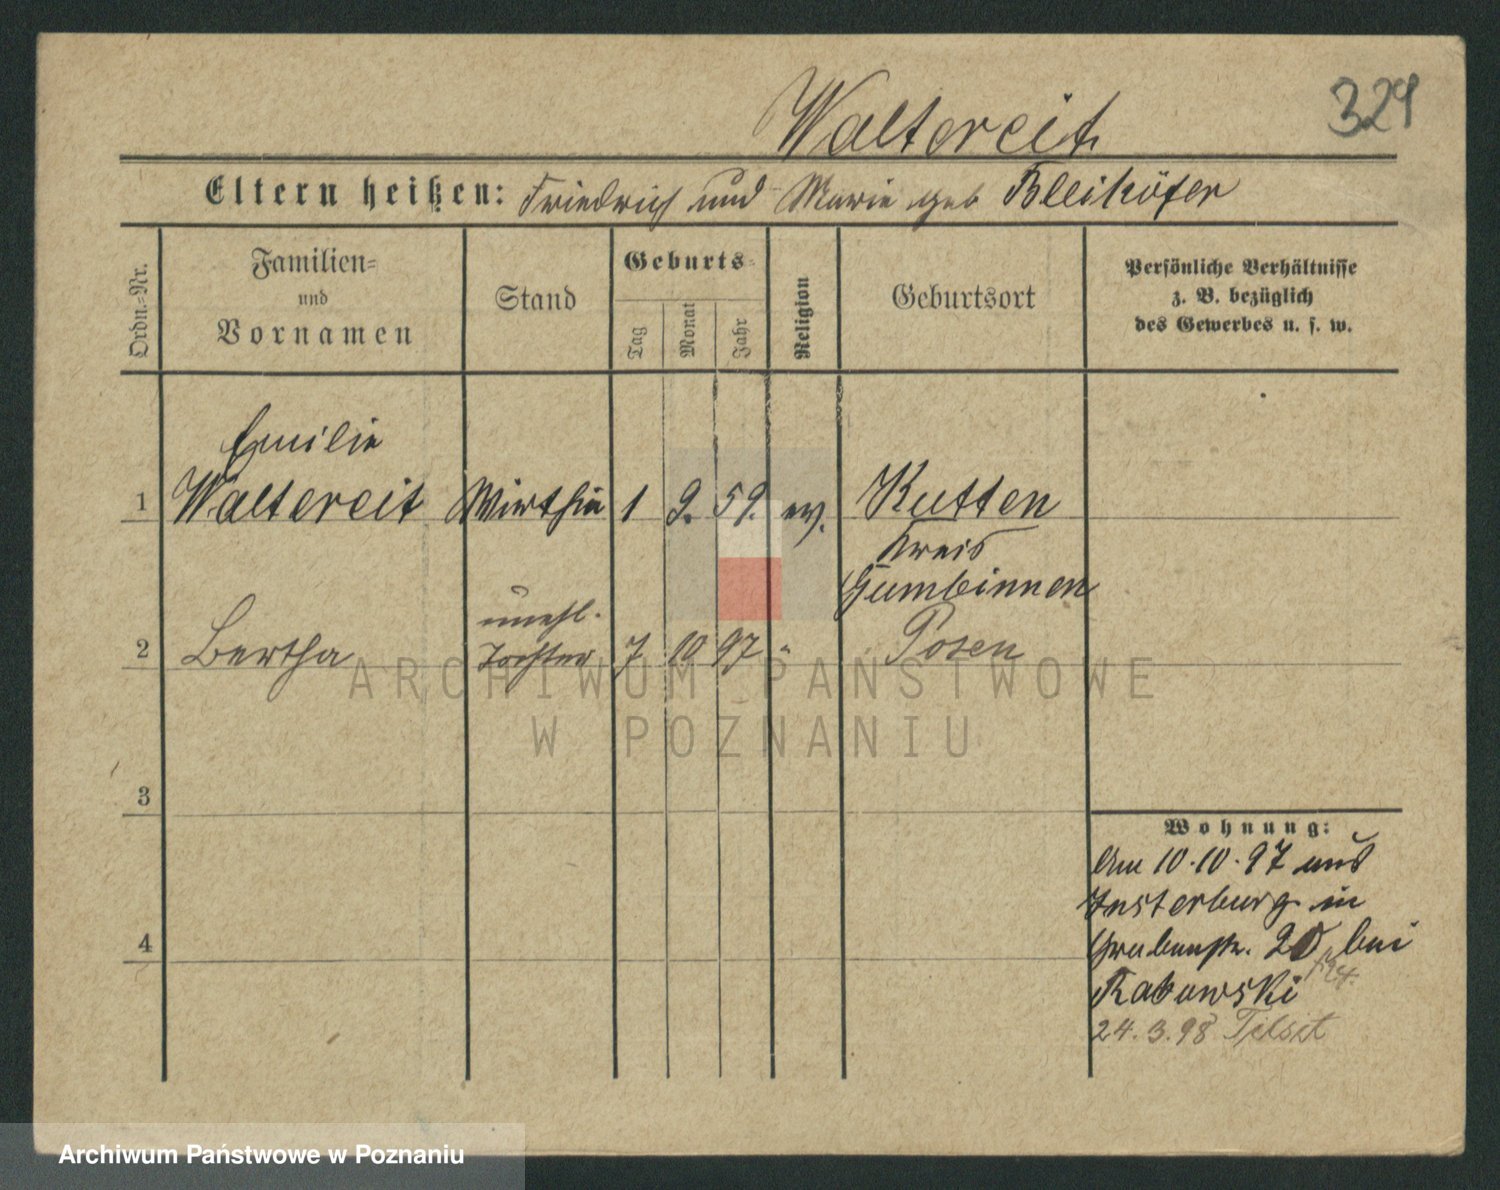 329
Waltereit
Eltern heißen: Friedrich und Marie geb Bleihöfer
Ordn.-Nr.
Familien-
und
Vornamen
Stand
Geburts-
Tag
Monat
Jahr
Religion
Geburtsort
Persönliche Verhältnisse
z. B. bezüglich
des Gewerbes u. s. w.
Emilie
1 Waltereit Wirthin 1 9. 59. ev. Kutten
Kreis
Gumbinnen
unehl.
2 Bertha Tochter 7 10 97 " Posen
3
4
Wohnung:
Am 10.10.97 aus
Insterburg in
Grabenstr. 20 bei
Rabowski
24.3.98 Tilsit
ARCHIWUM PAŃSTWOWE
W POZNANIU
Archiwum Państwowe w Poznaniu